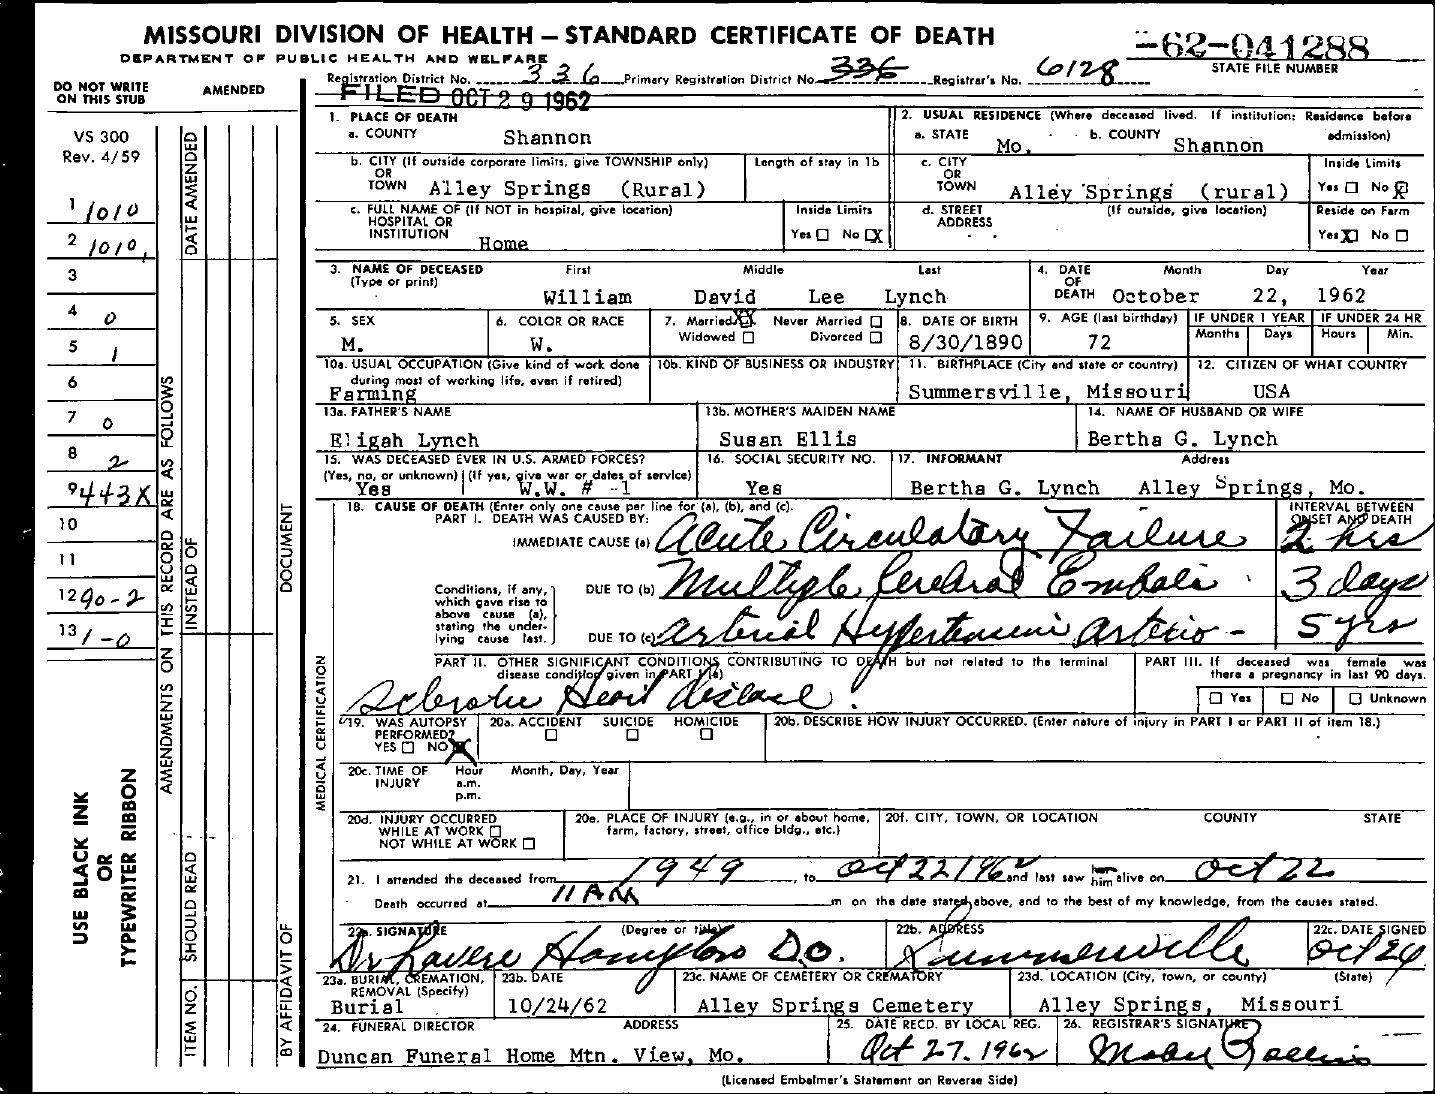 MISSOURI DIVISION OF HEALTH — STANDARD CERTIFICATE OF DEATH
DEPARTMENT OF PUBLIC HEALTH AND WELFARE
-62-041288
STATE FILE NUMBER
Registration District No. 336 Primary Registration District No. 336 Registrar's No. 6128
FILED OCT 29 1962
DO NOT WRITE ON THIS STUB
AMENDED
VS 300
Rev. 4/59
1 1010
2 1010,
3
4 0
5 1
6
7 0
8 2
9 443X
10
11
12 90-2
13 1-0
USE BLACK INK
OR
TYPEWRITER RIBBON
AMENDMENTS ON THIS RECORD ARE AS FOLLOWS
DATE AMENDED
INSTEAD OF
SHOULD READ
ITEM NO.
DOCUMENT
BY AFFIDAVIT OF
MEDICAL CERTIFICATION
1. PLACE OF DEATH
a. COUNTY Shannon
b. CITY (If outside corporate limits, give TOWNSHIP only) OR TOWN Alley Springs (Rural)
Length of stay in 1b
c. FULL NAME OF (If NOT in hospital, give location) HOSPITAL OR INSTITUTION Home
Inside Limits Yes ☐ No ☒
2. USUAL RESIDENCE (Where deceased lived. If institution: Residence before admission)
a. STATE Mo. b. COUNTY Shannon
c. CITY OR TOWN Alley Springs (rural)
Inside Limits Yes ☐ No ☒
d. STREET ADDRESS (If outside, give location)
Reside on Farm Yes ☒ No ☐
3. NAME OF DECEASED (Type or print) First Middle Last
William David Lee Lynch
4. DATE OF DEATH Month Day Year
October 22, 1962
5. SEX M.
6. COLOR OR RACE W.
7. Married ☒ Never Married ☐ Widowed ☐ Divorced ☐
8. DATE OF BIRTH 8/30/1890
9. AGE (last birthday) 72
IF UNDER 1 YEAR Months Days
IF UNDER 24 HR Hours Min.
10a. USUAL OCCUPATION (Give kind of work done during most of working life, even if retired) Farming
10b. KIND OF BUSINESS OR INDUSTRY
11. BIRTHPLACE (City and state or country) Summersville, Missouri
12. CITIZEN OF WHAT COUNTRY USA
13a. FATHER'S NAME Eligah Lynch
13b. MOTHER'S MAIDEN NAME Susan Ellis
14. NAME OF HUSBAND OR WIFE Bertha G. Lynch
15. WAS DECEASED EVER IN U.S. ARMED FORCES?
(Yes, no, or unknown) (If yes, give war or dates of service)
Yes W.W. # -1
16. SOCIAL SECURITY NO. Yes
17. INFORMANT Address
Bertha G. Lynch Alley Springs, Mo.
18. CAUSE OF DEATH (Enter only one cause per line for (a), (b), and (c).
PART I. DEATH WAS CAUSED BY:
INTERVAL BETWEEN ONSET AND DEATH
IMMEDIATE CAUSE (a) Acute Circulatory Failure 2 hrs
Conditions, if any, which gave rise to above cause (a), stating the underlying cause last.
DUE TO (b) Multiple Cerebral Emboli 3 days
DUE TO (c) Arterial Hypertensive Arterio - 5 yrs
PART II. OTHER SIGNIFICANT CONDITIONS CONTRIBUTING TO DEATH but not related to the terminal disease condition given in PART I (a)
Sclerotic Heart disease.
PART III. If deceased was female was there a pregnancy in last 90 days.
☐ Yes ☐ No ☐ Unknown
19. WAS AUTOPSY PERFORMED? YES ☐ NO ☒
20a. ACCIDENT SUICIDE HOMICIDE
☐ ☐ ☐
20b. DESCRIBE HOW INJURY OCCURRED. (Enter nature of injury in PART I or PART II of item 18.)
20c. TIME OF INJURY Hour a.m. p.m. Month, Day, Year
20d. INJURY OCCURRED WHILE AT WORK ☐ NOT WHILE AT WORK ☐
20e. PLACE OF INJURY (e.g., in or about home, farm, factory, street, office bldg., etc.)
20f. CITY, TOWN, OR LOCATION COUNTY STATE
21. I attended the deceased from 1949, to Oct 22 1962 and last saw her him alive on Oct 22
Death occurred at 11 AM m on the date stated above, and to the best of my knowledge, from the causes stated.
22a. SIGNATURE (Degree or title) D.O.
22b. ADDRESS Summersville
22c. DATE SIGNED Oct 24
23a. BURIAL, CREMATION, REMOVAL (Specify) Burial
23b. DATE 10/24/62
23c. NAME OF CEMETERY OR CREMATORY Alley Springs Cemetery
23d. LOCATION (City, town, or county) (State) Alley Springs, Missouri
24. FUNERAL DIRECTOR ADDRESS
Duncan Funeral Home Mtn. View, Mo.
25. DATE RECD. BY LOCAL REG. Oct 27. 1962
26. REGISTRAR'S SIGNATURE
(Licensed Embalmer's Statement on Reverse Side)